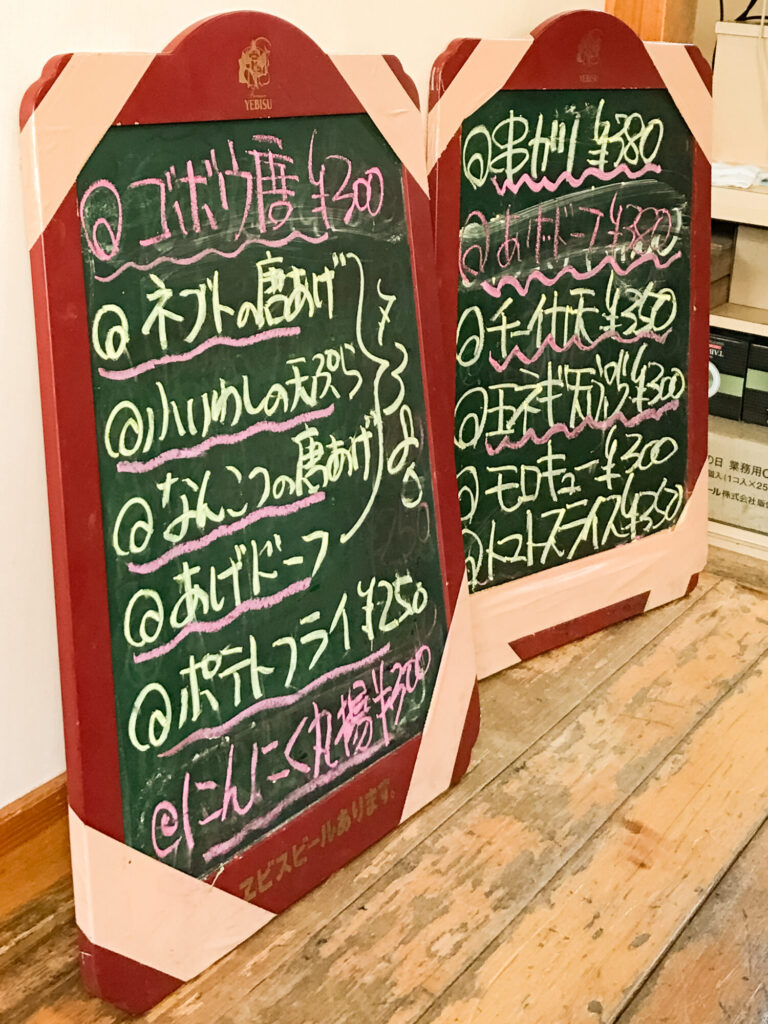 YEBISU
@ゴボウ唐 ¥300
@ネブトの唐あげ
@小いわしの天ぷら
@なんこつの唐あげ
@あげドーフ
380
@ポテトフライ ¥250
@にんにく丸揚 ¥300
ヱビスビールあります。
YEBISU
@串ガリ ¥380
@あげドーフ ¥380
@チーイカ天 ¥350
@玉ネギ天ぷら ¥300
@モロキュー ¥300
@トマトスライス ¥350
の日 業務用